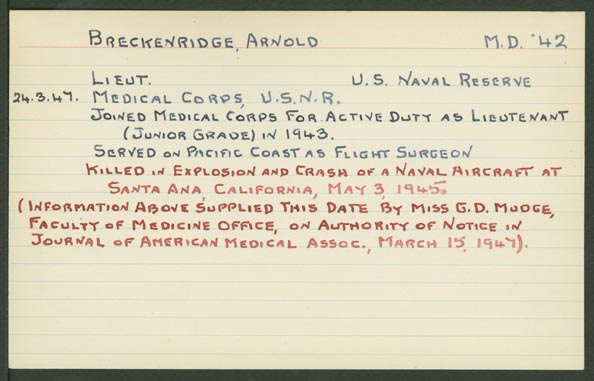 BRECKENRIDGE, ARNOLD M.D. '42
LIEUT. U.S. NAVAL RESERVE
24.3.47. MEDICAL CORPS, U.S.N.R.
JOINED MEDICAL CORPS FOR ACTIVE DUTY AS LIEUTENANT
(JUNIOR GRADE) IN 1943.
SERVED ON PACIFIC COAST AS FLIGHT SURGEON
KILLED IN EXPLOSION AND CRASH OF A NAVAL AIRCRAFT AT
SANTA ANA, CALIFORNIA, MAY 3, 1945.
(INFORMATION ABOVE SUPPLIED THIS DATE BY MISS G.D. MUDGE,
FACULTY OF MEDICINE OFFICE, ON AUTHORITY OF NOTICE IN
JOURNAL OF AMERICAN MEDICAL ASSOC., MARCH 15, 1947).